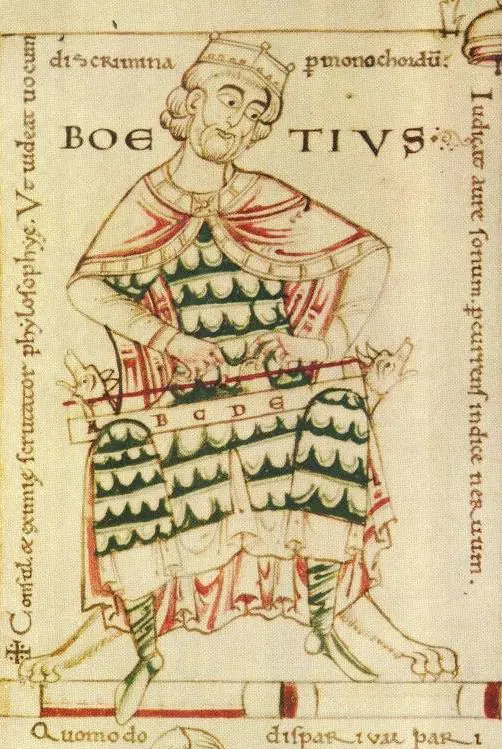 ✠ Consul & eximię scrutator phylosophyę. Vt uideat uocum
discrimina p monochordū:
BOETIVS
Iudicat aure sonum. pcurrens indice neruum.
A B C D E
Quomodo dispar par i